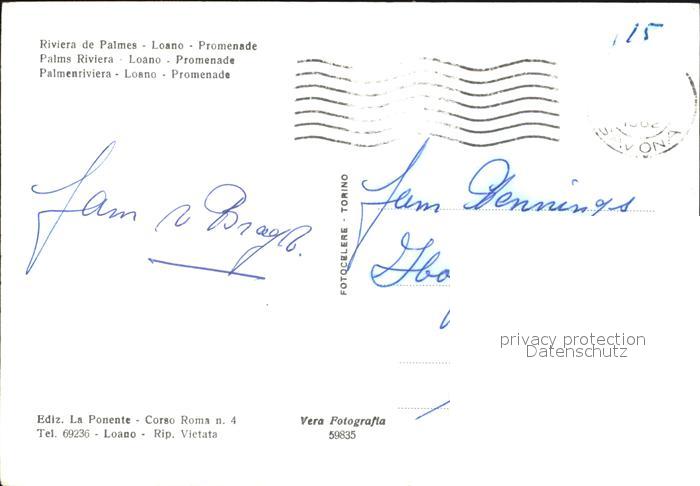 Riviera de Palmes - Loano - Promenade
Palms Riviera - Loano - Promenade
Palmenriviera - Loano - Promenade
15
Fam v Bragt.
FOTOCELERE - TORINO
Fam Hennings
privacy protection
Datenschutz
Ediz. La Ponente - Corso Roma n. 4
Tel. 69236 - Loano - Rip. Vietata
Vera Fotografia
59835